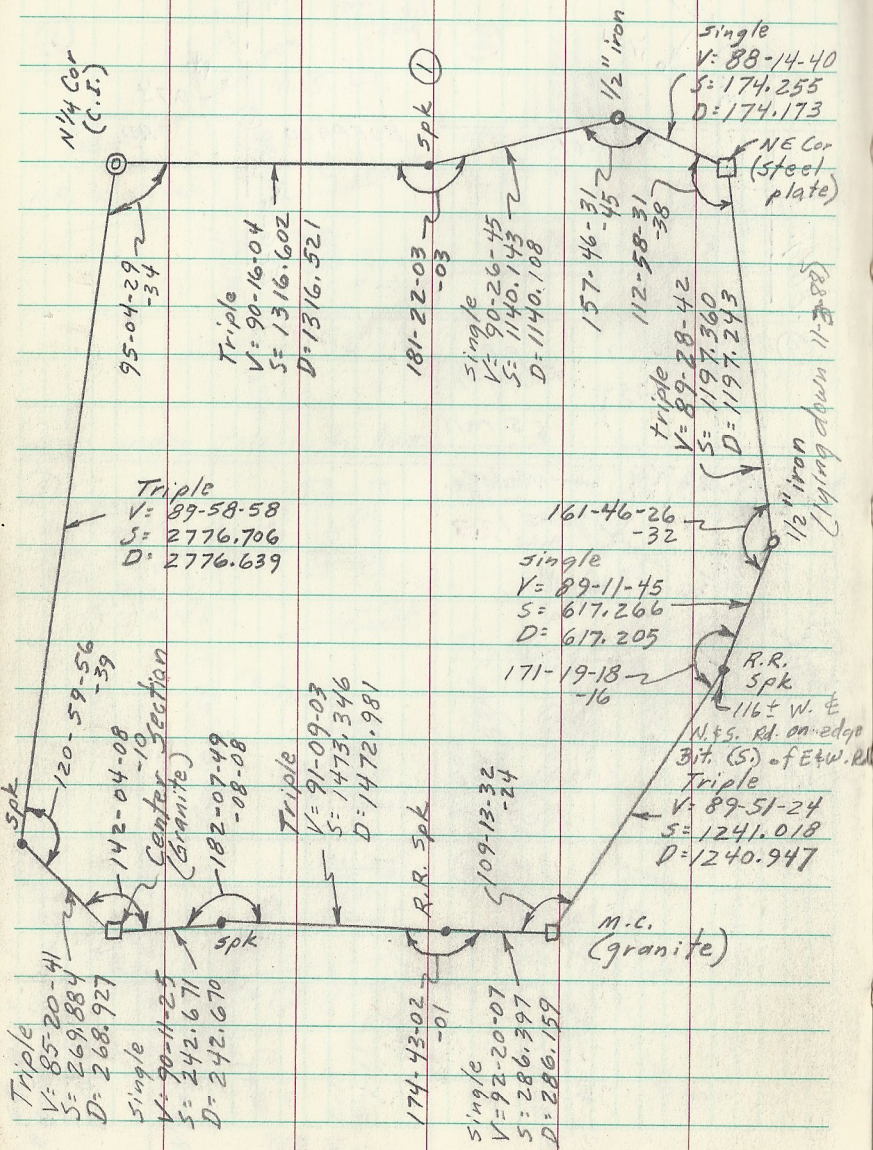 N 1/4 Cor
(C.I.)
spk ①
1/2" iron
single
V= 88-14-40
S= 174.255
D= 174.173
NE Cor
(steel
plate)
95-04-29
-34
Triple
V= 90-16-04
S= 1316.602
D= 1316.521
181-22-03
-03
single
V= 90-26-45
S= 1140.143
D= 1140.108
157-46-31
-45
112-58-31
-38
triple
V= 89-28-42
S= 1197.360
D= 1197.243
1/2" iron
(lying down 11-88)
Triple
V= 89-58-58
S= 2776.706
D= 2776.639
161-46-26
-32
single
V= 89-11-45
S= 617.266
D= 617.205
171-19-18
-16
R.R.
Spk
116± W. ℄
N.&S. Rd. on edge
Bit. (S.) of E&W. Rd
Triple
V= 89-51-24
S= 1241.018
D= 1240.947
spk
120-59-56
-39
142-04-08
-10
Center Section
(Granite)
182-07-49
-08-08
spk
Triple
V= 91-09-03
S= 1473.346
D= 1472.981
R.R. Spk
109-13-32
-24
M.C.
(granite)
Triple
V= 85-20-41
S= 269.884
D= 268.927
Single
V= 90-11-25
S= 242.671
D= 242.670
174-43-02
-01
single
V= 92-20-07
S= 286.397
D= 286.159